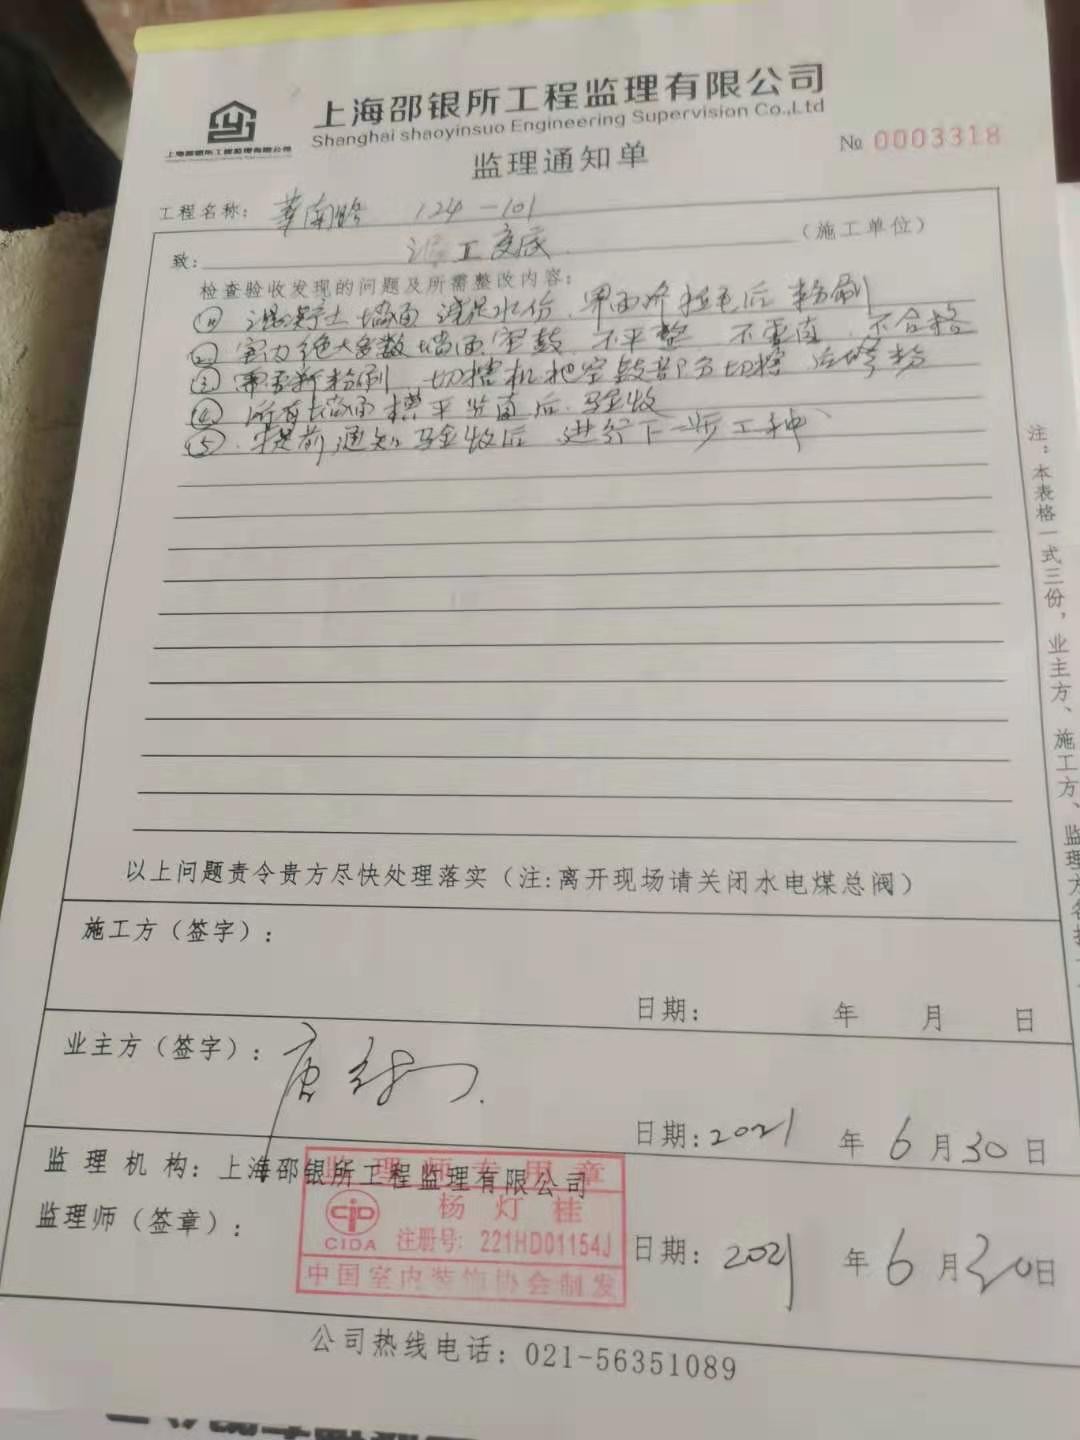 上海邵银所工程监理有限公司
Shanghai shaoyinsuo Engineering Supervision Co.,Ltd
上海邵银所工程监理有限公司
监理通知单
№ 0003318
工程名称: 華南 124-101
致: 工交底 (施工单位)
检查验收发现的问题及所需整改内容:
① 混凝土墙面 浇足水份 界面济拉毛后 粉刷
② 室内绝大多数墙面 空鼓 不平整 不垂直 不合格
③ 需重新粉刷 切槽机把空鼓部分切槽 后修粉
④ 所有墙面 槽平 后 验收
⑤ 提前通知验收后 进行下一步工种
以上问题责令贵方尽快处理落实(注:离开现场请关闭水电煤总阀)
施工方(签字):
日期: 年 月 日
业主方(签字): 唐
日期: 2021 年 6 月 30 日
监理机构: 上海邵银所工程监理有限公司
监理师(签章):
日期: 2021 年 6 月 30 日
监理师专用章
杨灯桂
CIDA 注册号: 221HD01154J
中国室内装饰协会制发
公司热线电话: 021-56351089
注:本表格一式三份,业主方、施工方、监理方各